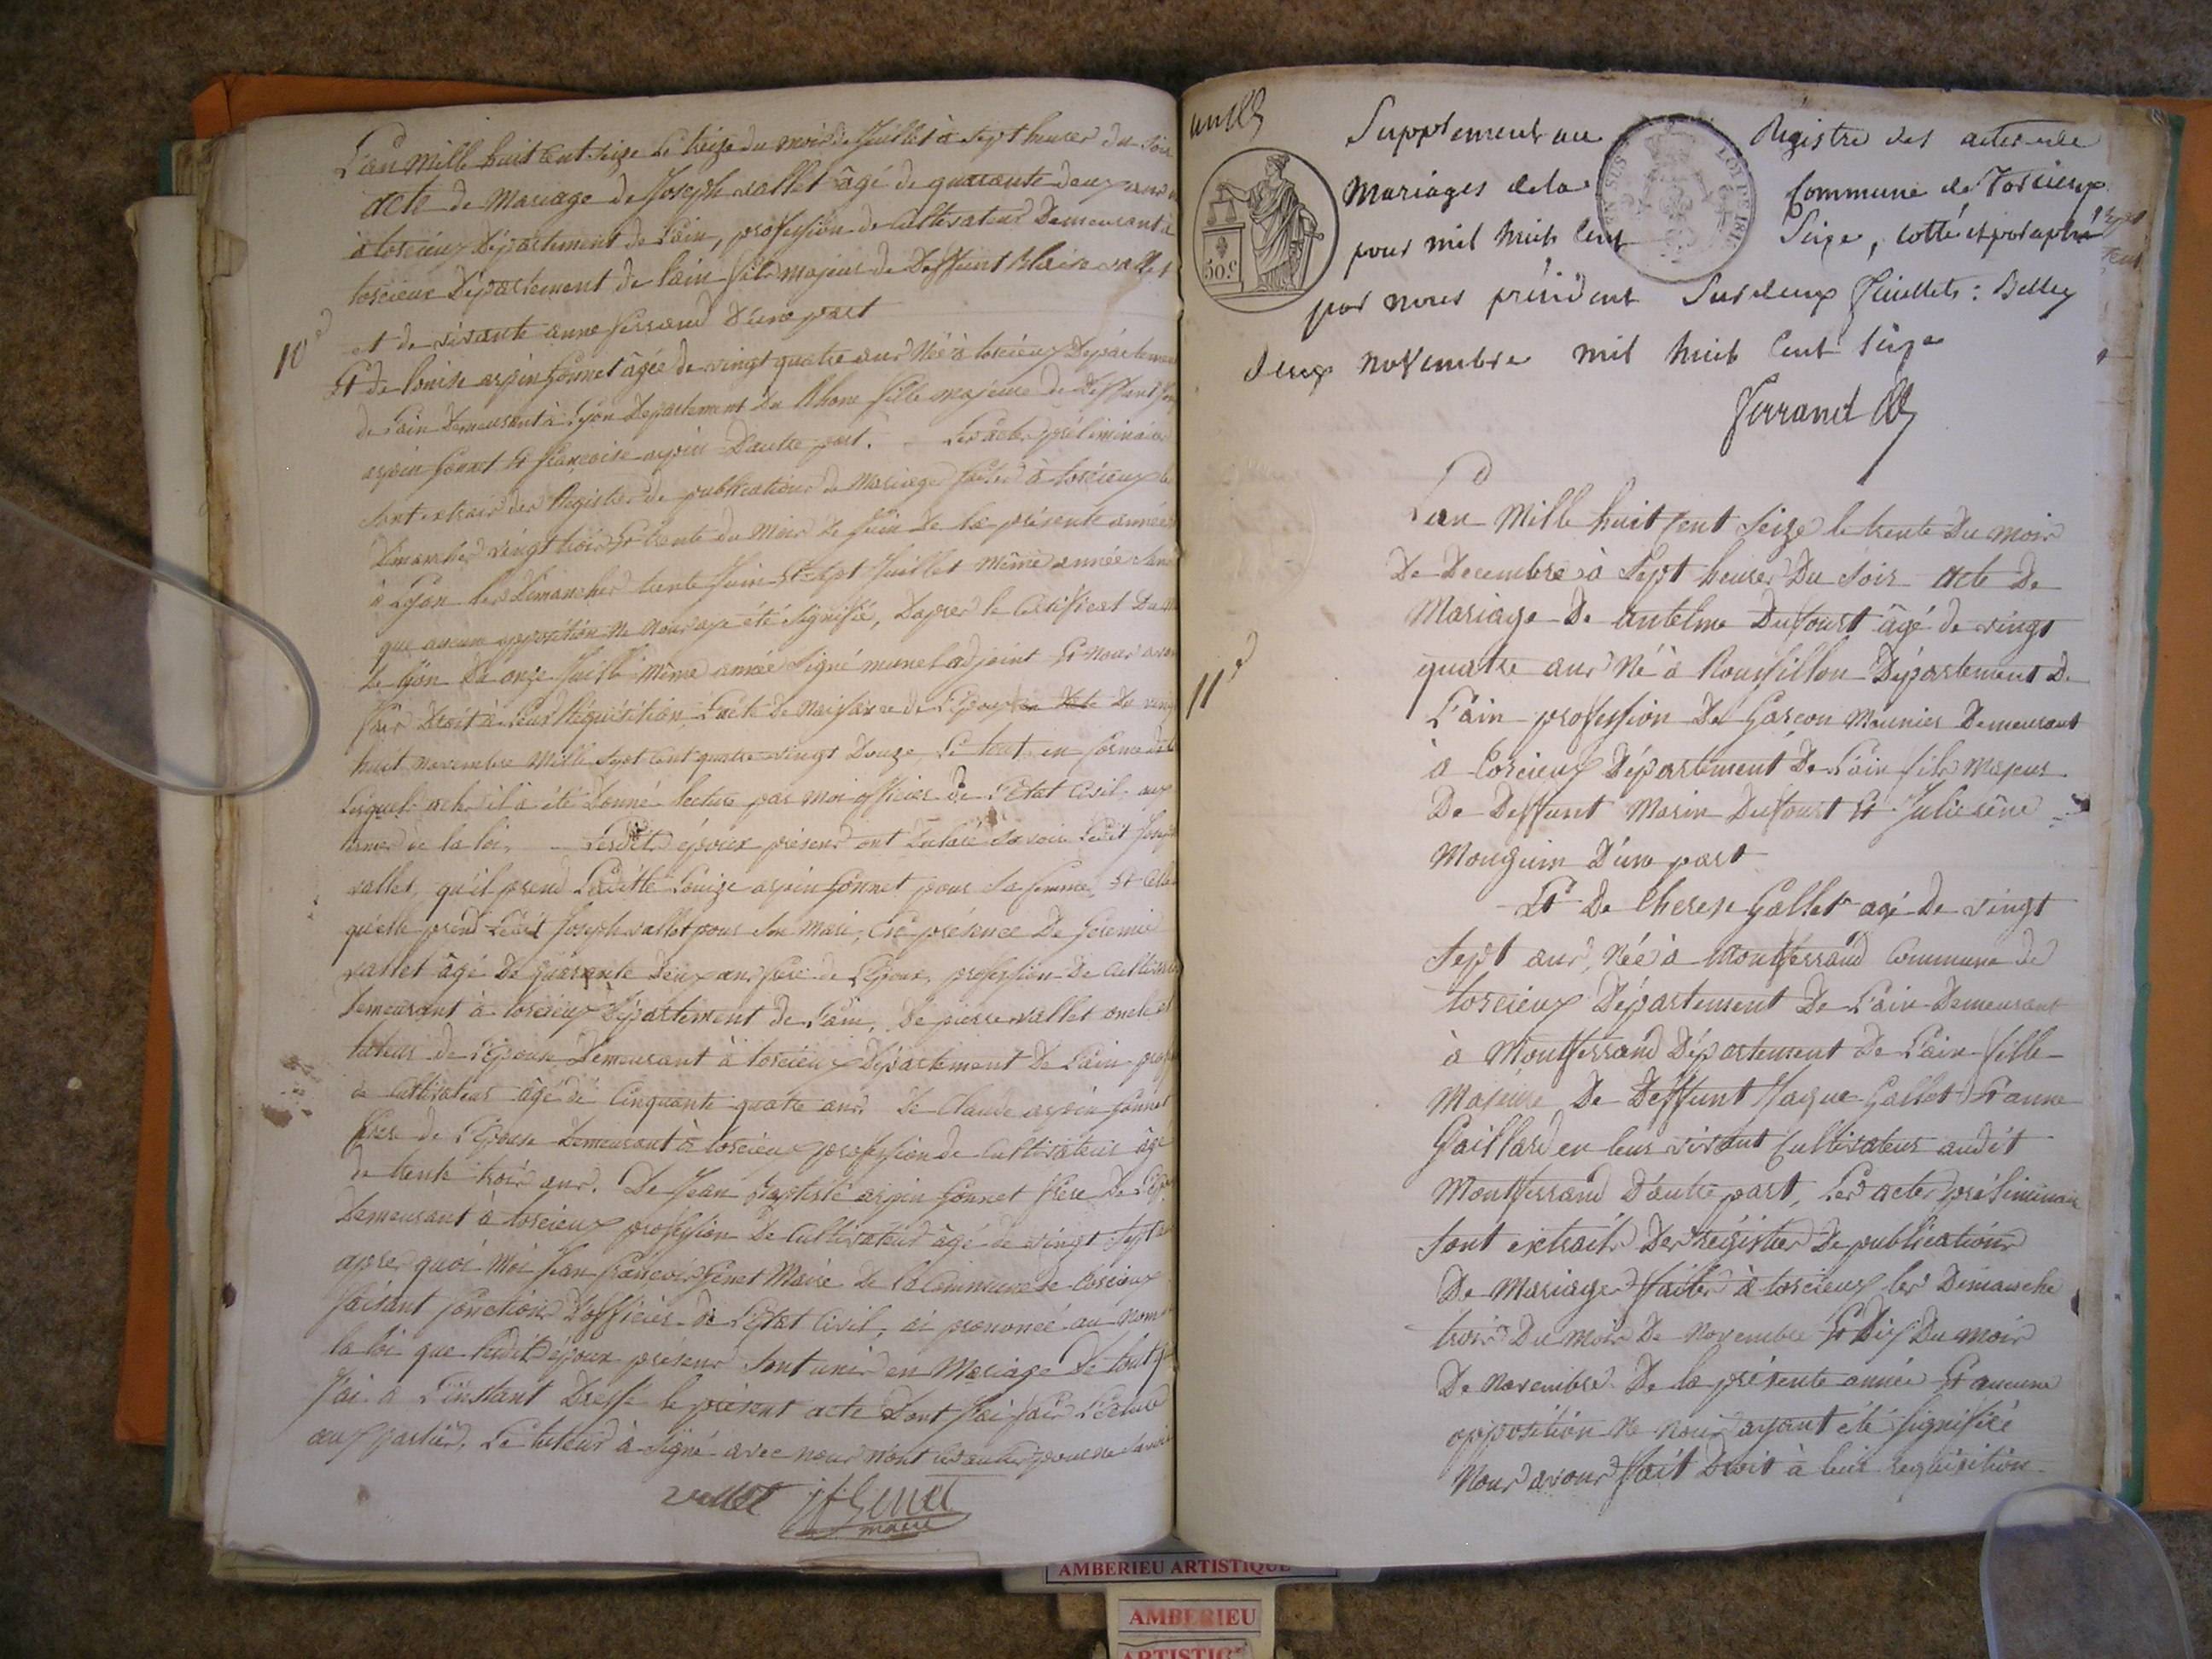 L'an mille huit cent seize le treize du mois de Juillet à sept heures du soir
acte de Mariage de Joseph vallet âgé de quarante deux ans
à torcieux Département de L'ain, profession de Cultivateur Demeurant à
torcieux Département de l'ain fils majeur de Deffunt Blaise vallet
et de vivante anne ferrand D'une part
10e
Et de louise arpin gonnet âgée de vingt quatre ans Née à torcieux Département
de l'ain Demeurant à Lyon Département Du Rhone fille majeure de Deffunt
arpin gonnet Et francoise arpin D'autre part. Les actes préliminaires
sont extrait des Registres de publications de Mariage faites à torcieux les
Dimanches vingt trois Et trente du Mois de Juin de la présente année
à Lyon les Dimanches trente Juin Et sept Juillet même année
que aucune opposition ne nous aye été signifié, D'apres le Certificat Du
de Lyon Du onze Juillet même année Signé munet adjoint Et nous avons
fair Droit à leur Réquisition L'acte de Naissance de L'Epouse Du vingt
huit novembre Mille sept cent quatre vingt Douze, Le tout en forme
lesquels actes il a été Donné lecture par moi officier de l'Etat Civil aux
termes de la loi, Lesdits époux présend ont Déclaré savoir Ledit Joseph
vallet, qu'il prend Laditte Louize arpin gonnet pour sa femme, Et Celle
qu'elle prend Ledit Joseph vallet pour son Mari, En présence De Géremie
vallet âgé De quarante Deux ans frère de L'Epoux, profession De Cultivateur
Demeurant à torcieux Département de L'ain, De pierre vallet oncle et
tuteur de l'Epouse Demeurant à torcieux Département De L'ain
de Cultivateur âgé de Cinquante quatre ans. De Claude arpin gonnet
frere de l'Epouse Demeurant à torcieux profession de Cultivateur âgé
de trente trois ans. De Jean Baptiste arpin gonnet frere De
Demeurant à torcieux profession De Cultivateur âgé de vingt sept
apres quoi Moi Jean francois Genet Maire De la Commune de torcieux
faisant fonctions D'officier de l'Etat Civil, ai prononcé au Nom
la loi que lesdits époux présend sont unis en Mariage De tout
J'ai à L'instant Dressé le présent acte Dont J'ai fair Lecture
aux parties, Le tuteur à signé avec nous
vallet jf Genet
maire
Supplement au Régistre des actes de
Mariages de la Commune de Torcieux
pour mil huit Cent Seize, cotté et paraphé
50.c
par nous président Sur deux feuillets : Belley
deux novembre mil huit Cent Seize
Ferrand
L'an Mille huit Cent Seize le trente Du mois
De Decembre à Sept heures Du Soir acte De
Mariage De antelme Dufourt âgé de vingt
quatre ans Né à Roussillon Département De
11e
L'ain profession De Garcon Meunier Demeurant
à torcieux Département De L'ain fils Majeur
De Deffunt Marin Dufourt Et Julie
Monguin D'une part
Et De therese Gallet agé De vingt
Sept ans, Née à Montferrand Commune de
torcieux Département De L'ain Demeurant
à Montferrand Département De L'ain fille
Majeure De Deffunt Jaque Gallet Et anne
Gaillard en leur vivant Cultivateur audit
Montferrand D'autre part, Les actes préliminair
Sont extraits Des Régistres De publications
De Mariages faites à torcieux les Dimanche
trois Du mois De novembre Et Dix Du mois
De novembre De la présente année Et aucune
opposition ne nous ayant été signifiée
Nous avons fait Droit à leur requisition
AMBERIEU ARTISTIQUE
AMBERIEU
ARTISTIQ